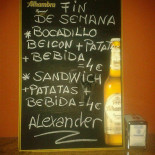 Alhambra
Especial
FIN
DE SEMANA
* BOCADILLO
BEICON + PATATAS
+ BEBIDA = 4€
* SANDWICH
+ PATATAS +
BEBIDA = 4€
ALEXANDER